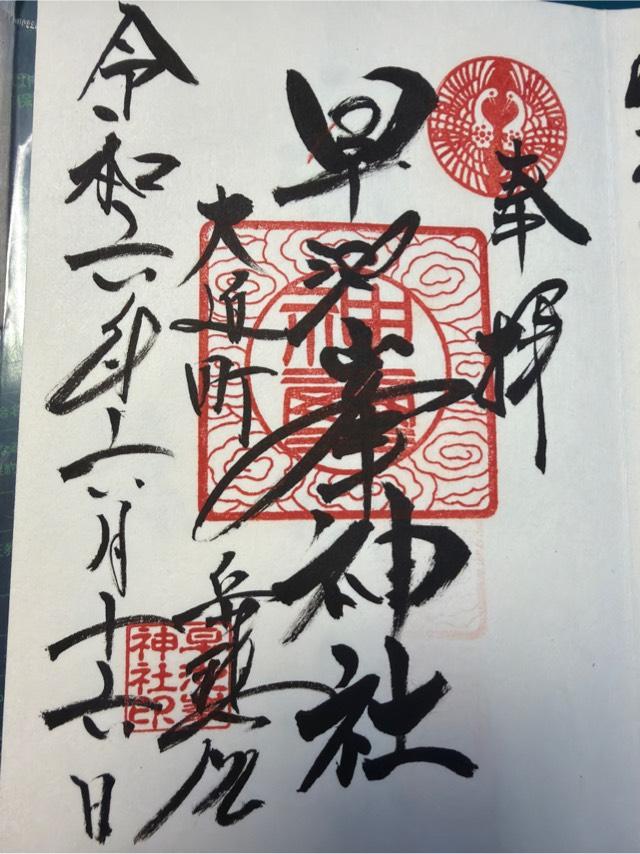 奉拝
早池峯神社
大迫町
令和六年六月十六日
早池峯
神社印